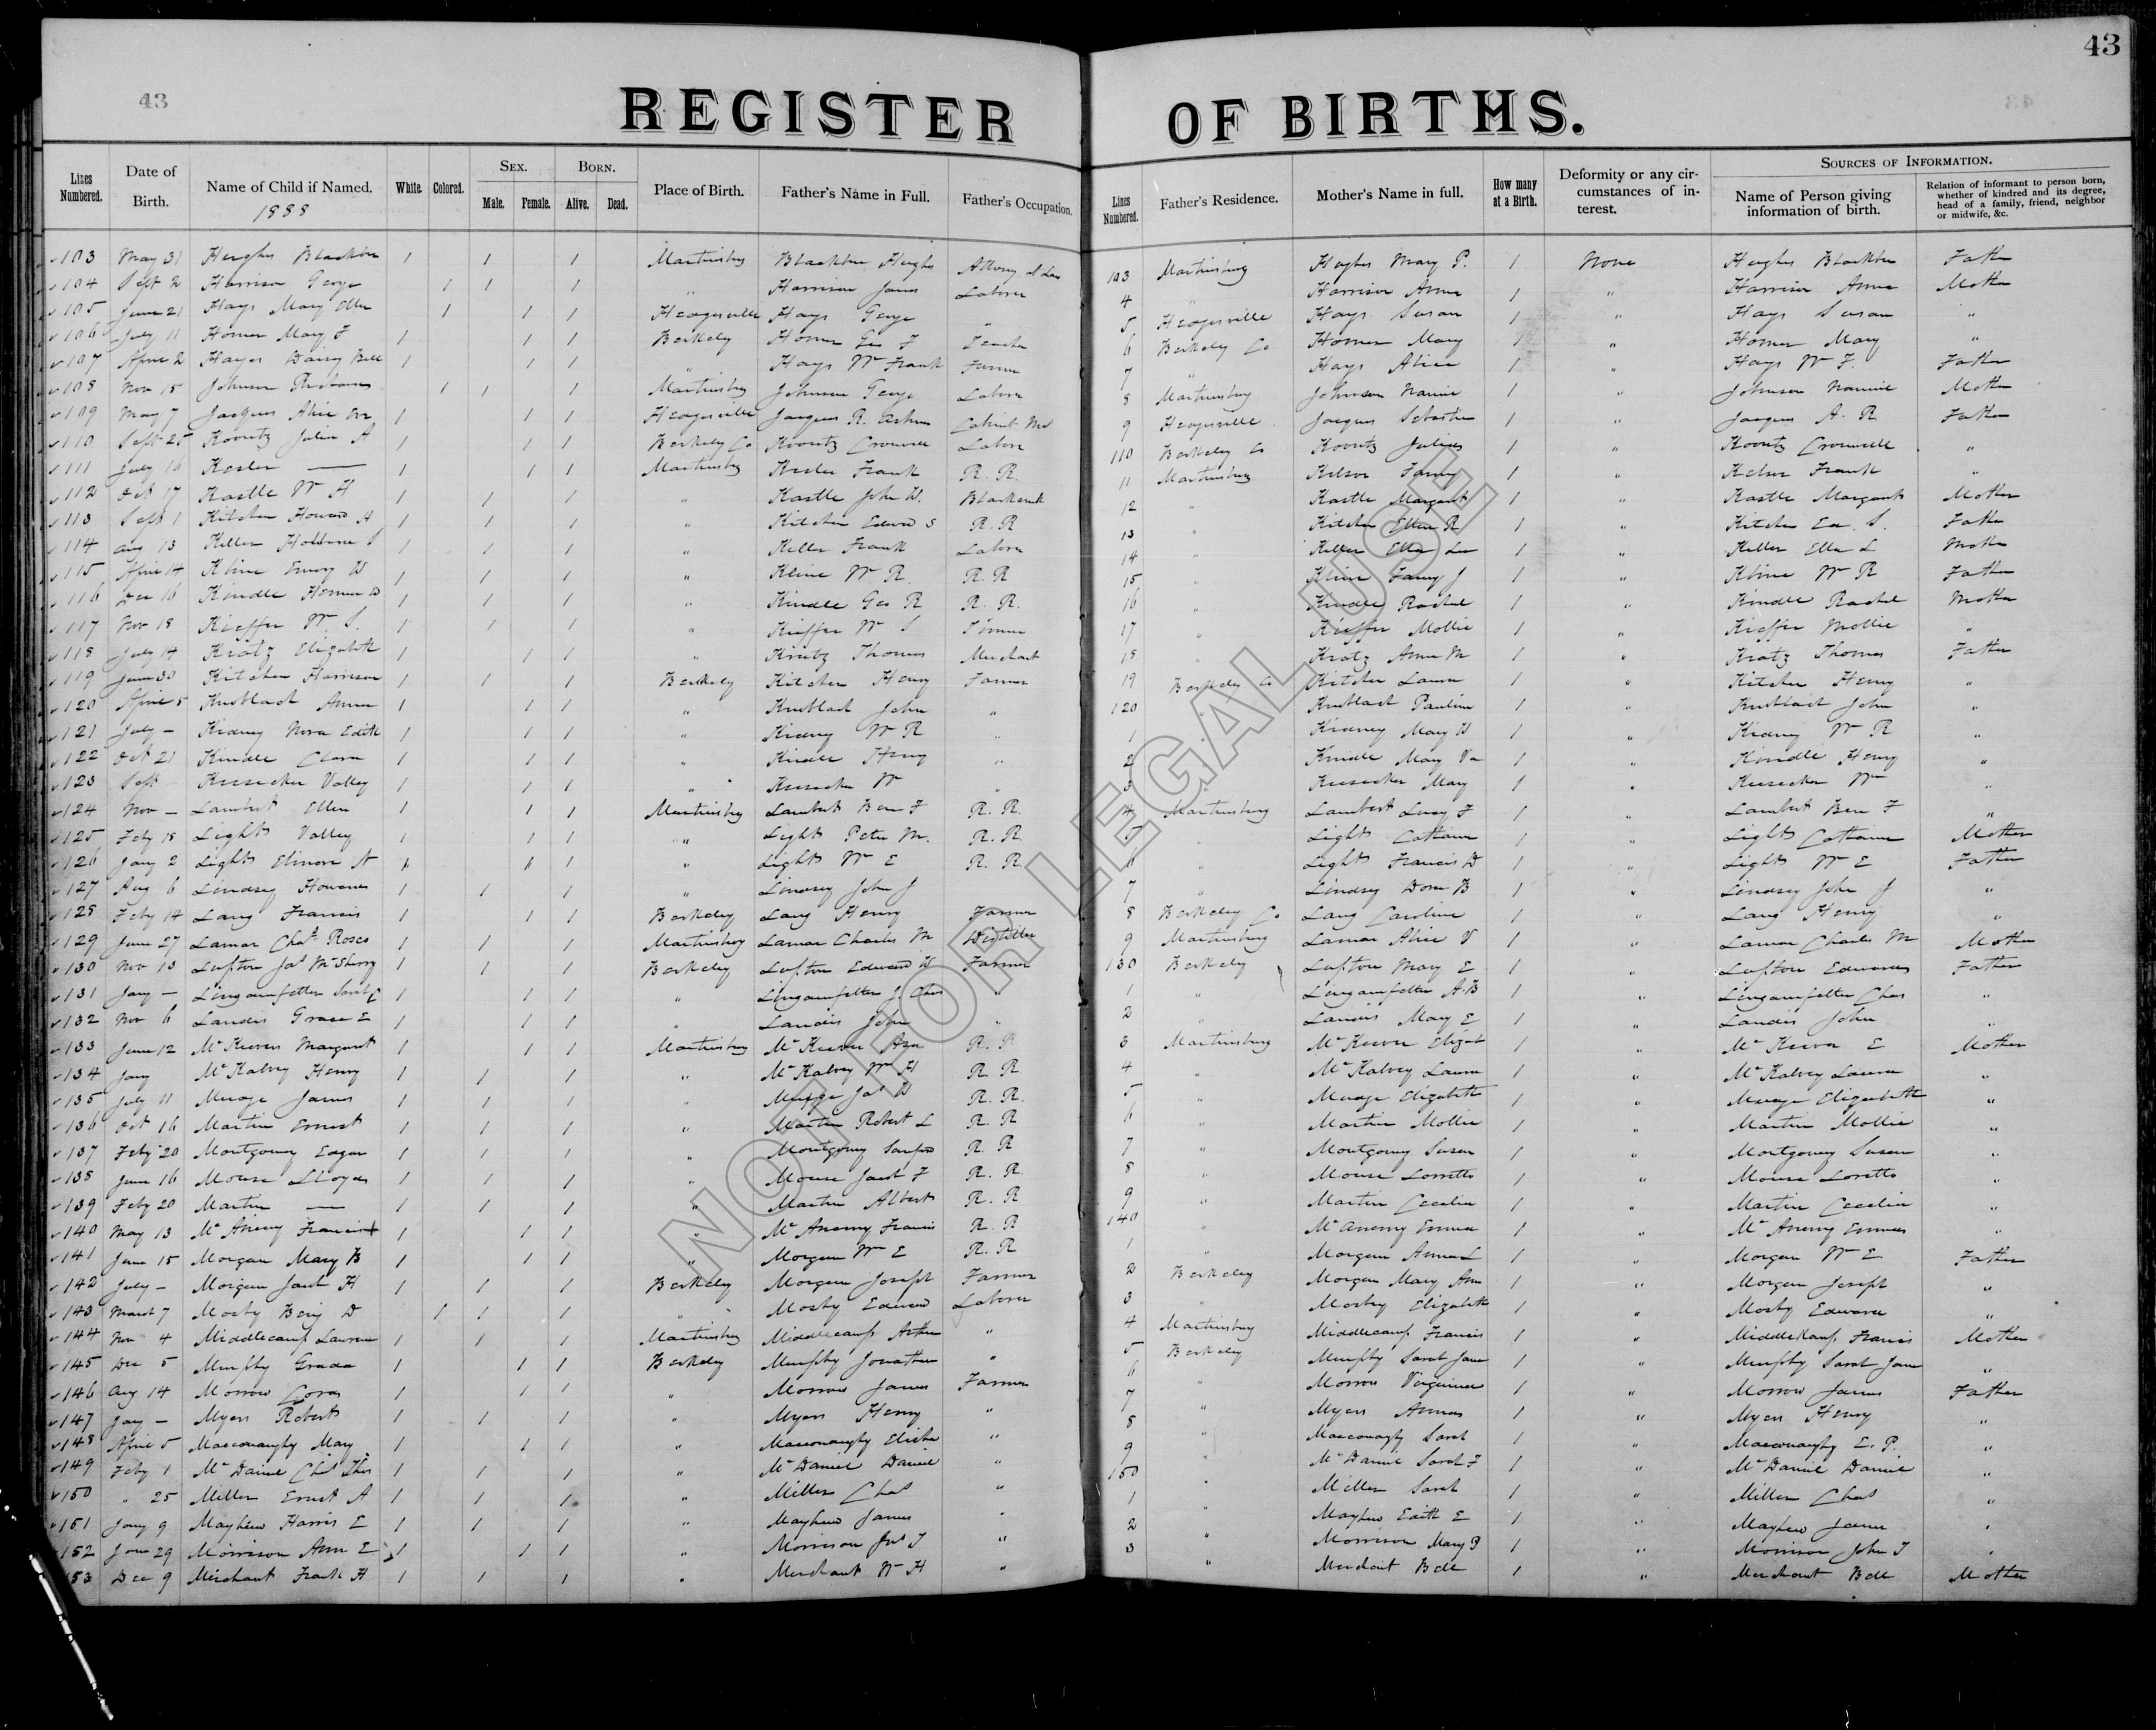 43
43
REGISTER OF BIRTHS.
Lines Numbered. Date of Birth. Name of Child if Named. White. Colored. Sex. Male. Female. Born. Alive. Dead. Place of Birth. Father's Name in Full. Father's Occupation. Lines Numbered. Father's Residence. Mother's Name in full. How many at a Birth. Deformity or any circumstances of interest. Sources of Information. Name of Person giving information of birth. Relation of informant to person born, whether of kindred and its degree, head of a family, friend, neighbor or midwife, &c.
1888
103 May 31 Hughes 1 1 1 Martinsburg Hughes Attorney at Law 103 Martinsburg Hughes Mary P. 1 None Hughes Father
104 Sept 2 Harrison George 1 1 1 " Harrison James Laborer 4 " Harrison Annie 1 " Harrison Annie Mother
105 June 21 Hays Mary Ellen 1 1 1 Hedgesville Hays George " 5 Hedgesville Hays Susan 1 " Hays Susan "
106 July 11 Homer Mary F 1 1 1 Berkeley Homer Geo F 6 Berkeley Co Homer Mary 1 " Homer Mary "
107 April 2 Hayes Daisy Bell 1 1 1 " Hays Wm Frank Farmer 7 " Hays Alice 1 " Hays W F. Father
108 Nov 18 Johnson 1 1 1 Martinsburg Johnson George Laborer 8 Martinsburg Johnson Nannie 1 " Johnson Nannie Mother
109 May 7 Jacques Alice 1 1 1 Hedgesville Jacques R. 9 Hedgesville Jacques 1 " Jacques A. R Father
110 Sept 25 Koontz Julia A 1 1 1 Berkeley Co Koontz Cromwell Laborer 110 Berkeley Co Koontz 1 " Koontz Cromwell "
111 July 16 Kesler — 1 1 1 Martinsburg Kesler Frank R. R. 11 Martinsburg Fanny 1 " Frank "
112 Oct 17 Kastle W H 1 1 1 " Kastle John W. Blacksmith 12 " Kastle Margaret 1 " Kastle Margaret Mother
113 Sept 1 Kitchen Howard H 1 1 1 " Kitchen Edward S R. R 13 " Kitchen Ellen R 1 " Kitchen Ed. S. Father
114 Aug 13 Keller S 1 1 1 " Keller Frank Laborer 14 " Keller Ella Lee 1 " Keller Ella L Mother
115 April 14 Kline Emory W 1 1 1 " Kline W R R. R 15 " Kline Fanny J 1 " Kline W R Father
116 Dec 16 Kindle 1 1 1 " Kindle Geo R R. R. 16 " Kindle Rachel 1 " Kindle Rachel Mother
117 Nov 18 Kieffer W. S. 1 1 1 " Kieffer W S 17 " Kieffer Mollie 1 " Kieffer Mollie "
118 July 14 Kratz Elizabeth 1 1 1 " Kratz Thomas Merchant 18 " Kratz Anna M 1 " Kratz Thomas Father
119 June 30 Kitchen Harrison 1 1 1 Berkeley Kitchen Henry Farmer 19 Berkeley Co Kitchen Laura 1 " Kitchen Henry "
120 April 5 Knoblach Anna 1 1 1 " Knoblach John " 120 " Knoblach Pauline 1 " Knoblach John "
121 July — Kidney Nora Edith 1 1 1 " Kidney W R " 1 " Kidney Mary W 1 " Kidney W R "
122 Oct 21 Kindle Clara 1 1 1 " Kindle Henry " 2 " Kindle Mary Va 1 " Kindle Henry "
123 Sept Keesecker Valley 1 1 1 " Keesecker W " 3 " Keesecker Mary 1 " Keesecker W "
124 Nov — Lambert Ellen 1 1 1 Martinsburg Lambert Ben F R. R. 4 Martinsburg Lambert Lucy F 1 " Lambert Ben F "
125 Feby 18 Lights Valley 1 1 1 " Lights Peter M. R. R 5 " Lights Catharine 1 " Lights Catharine Mother
126 Jany 2 Lights Elinore A 1 1 1 " Lights W E R. R. 6 " Lights Francis D 1 " Lights W E Father
127 Aug 6 Lindsey Howard 1 1 1 " Lindsey John J 7 " Lindsey Dora B 1 " Lindsey John J "
128 Feby 14 Lang Francis 1 1 1 Berkeley Lang Henry Farmer 8 Berkeley Co Lang Caroline 1 " Lang Henry "
129 June 27 Lamar Chas Rosco 1 1 1 Martinsburg Lamar Charles M Distiller 9 Martinsburg Lamar Alice V 1 " Lamar Charles M Mother
130 Nov 13 Lupton Jas McSherry 1 1 1 Berkeley Lupton Edward W Farmer 130 Berkeley Lupton Mary E 1 " Lupton Edward Father
131 Jany — Lingamfelter Sarah C 1 1 1 " Lingamfelter J. Chas " 1 " Lingamfelter A. B 1 " Lingamfelter Chas "
132 Nov 6 Landis Grace E 1 1 1 " Landis John " 2 " Landis Mary E 1 " Landis John "
133 June 12 McKeever Margaret 1 1 1 Martinsburg McKeever Asa R. R 3 Martinsburg McKeever Elizabt 1 " McKeever E Mother
134 Jany McKalvey Henry 1 1 1 " McKalvey Wm H R. R 4 " McKalvey Laura 1 " McKalvey Laura "
135 July 11 James 1 1 1 " Jas W R. R. 5 " Elizabeth 1 " Elizabeth "
136 Oct 16 Martin Ernest 1 1 1 " Martin Robert L R. R 6 " Martin Mollie 1 " Martin Mollie "
137 Feby 20 Montgomery Edgar 1 1 1 " Montgomery Sanford R. R 7 " Montgomery Susan 1 " Montgomery Susan "
138 June 16 Mouse Lloyd 1 1 1 " Mouse Jacob F R. R. 8 " Mouse Lorretto 1 " Mouse Loretto "
139 Feby 20 Martin — 1 1 1 " Martin Albert R. R 9 " Martin Cecelia 1 " Martin Cecelia "
140 May 13 McAneny Francis 1 1 1 " McAnemy Francis R. R 140 " McAnemy Emma 1 " McAnemy Emma "
141 June 15 Morgan Mary B 1 1 1 " Morgan W E R. R 1 " Morgan Anna L 1 " Morgan W E Father
142 July — Morgan Jacob H 1 1 1 Berkeley Morgan Joseph Farmer 2 Berkeley Morgan Mary Ann 1 " Morgan Joseph "
143 March 7 Mosby Benj D 1 1 1 " Mosby Edward Laborer 3 " Mosby Elizabeth 1 " Mosby Edward "
144 Nov 4 Middlecamp Lawrence 1 1 1 Martinsburg Middlecamp Arthur " 4 Martinsburg Middlecamp Francis 1 " Middlekamp Francis Mother
145 Dec 5 Murphy 1 1 1 Berkeley Murphy Jonathan " 5 Berkeley Murphy Sarah Jane 1 " Murphy Sarah Jane "
146 Aug 14 Morrow Cora 1 1 1 " Morrow James Farmer 6 " Morrow Virginia 1 " Morrow James Father
147 Jany — Myers Robert 1 1 1 " Myers Henry " 7 " Myers Anna 1 " Myers Henry "
148 April 5 Macconaughy Mary 1 1 1 " Macconaughy Elisha " 8 " Macconaughy Sarah 1 " Macconaughy E. P. "
149 Feby 1 McDaniel Chas Thos 1 1 1 " McDaniel Daniel " 9 " McDaniel Sarah F 1 " McDaniel Daniel "
150 " 25 Miller Ernest A 1 1 1 " Miller Chas " 150 " Miller Sarah 1 " Miller Chas "
151 Jany 9 Mayhew Harris E 1 1 1 " Mayhew James " 1 " Mayhew Edith E 1 " Mayhew James "
152 June 29 Morrison Ann E 1 1 1 " Morrison Jno T " 2 " Morrison Mary P 1 " Morrison John T "
153 Dec 9 Merchant Frank H 1 1 1 " Merchant W H " 3 " Merchant Belle 1 " Merchant Belle Mother
NOT FOR LEGAL USE